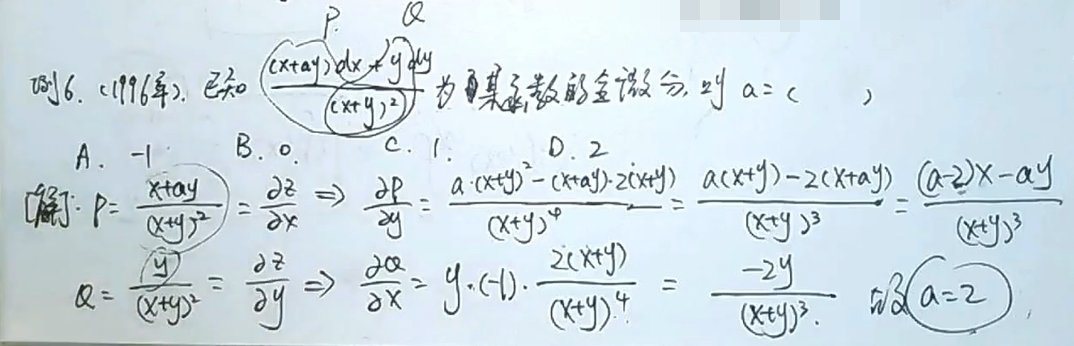 P. Q
例6. (1996年). 已知 ((x+ay)dx+ydy)/(x+y)² 为某函数的全微分, 则 a=( )
A. -1 B. 0. C. 1. D. 2
[解]: P= (x+ay)/(x+y)² = ∂z/∂x ⇒ ∂P/∂y = (a·(x+y)²-(x+ay)·2(x+y))/(x+y)⁴ = (a(x+y)-2(x+ay))/(x+y)³ = ((a-2)x-ay)/(x+y)³
Q= y/(x+y)² = ∂z/∂y ⇒ ∂Q/∂x = y·(-1)·2(x+y)/(x+y)⁴. = -2y/(x+y)³. a=2.